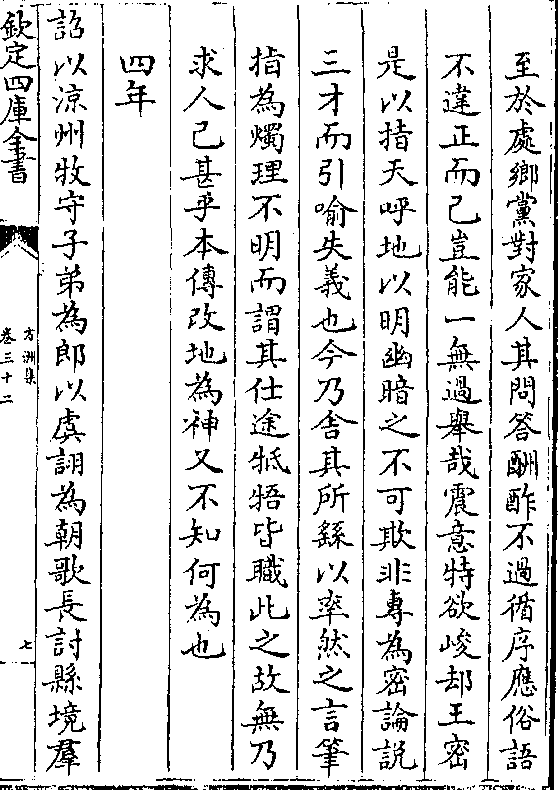 至於處鄉黨對家人其問答酬酢不過循序應俗語
不違正而已豈能一無過舉哉震意特欲峻却王密
是以指天呼地以明幽暗之不可欺非專為密論説
三才而引喻失義也今乃舎其所繇以率然之言筆
指為燭理不明而謂其仕途牴牾皆職此之故無乃
求人已甚乎本傳改地為神又不知何為也
四年
詔以涼州牧守子弟為郎以虞詡為朝歌長討縣境羣
欽定四庫全書
方洲集
卷三十二
七